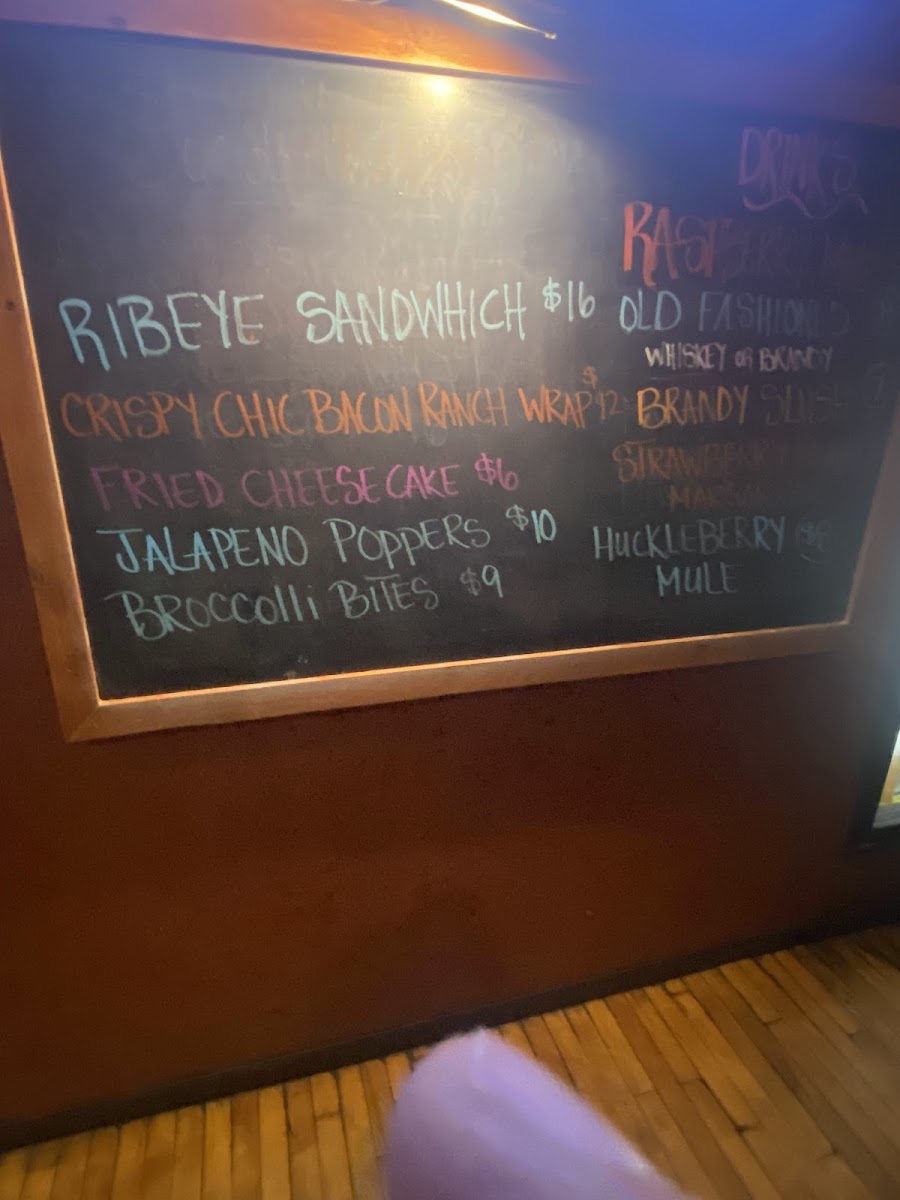 RIBEYE SANDWHICH $16
CRISPY CHIC BACON RANCH WRAP $12
FRIED CHEESE CAKE $6
JALAPENO POPPERS $10
BROCCOLLi BITES $9
DRINKS
OLD FASHION
WHISKEY OR BRANDY
BRANDY SLUSH
STRAWBERRY
HUCKLEBERRY
MULE